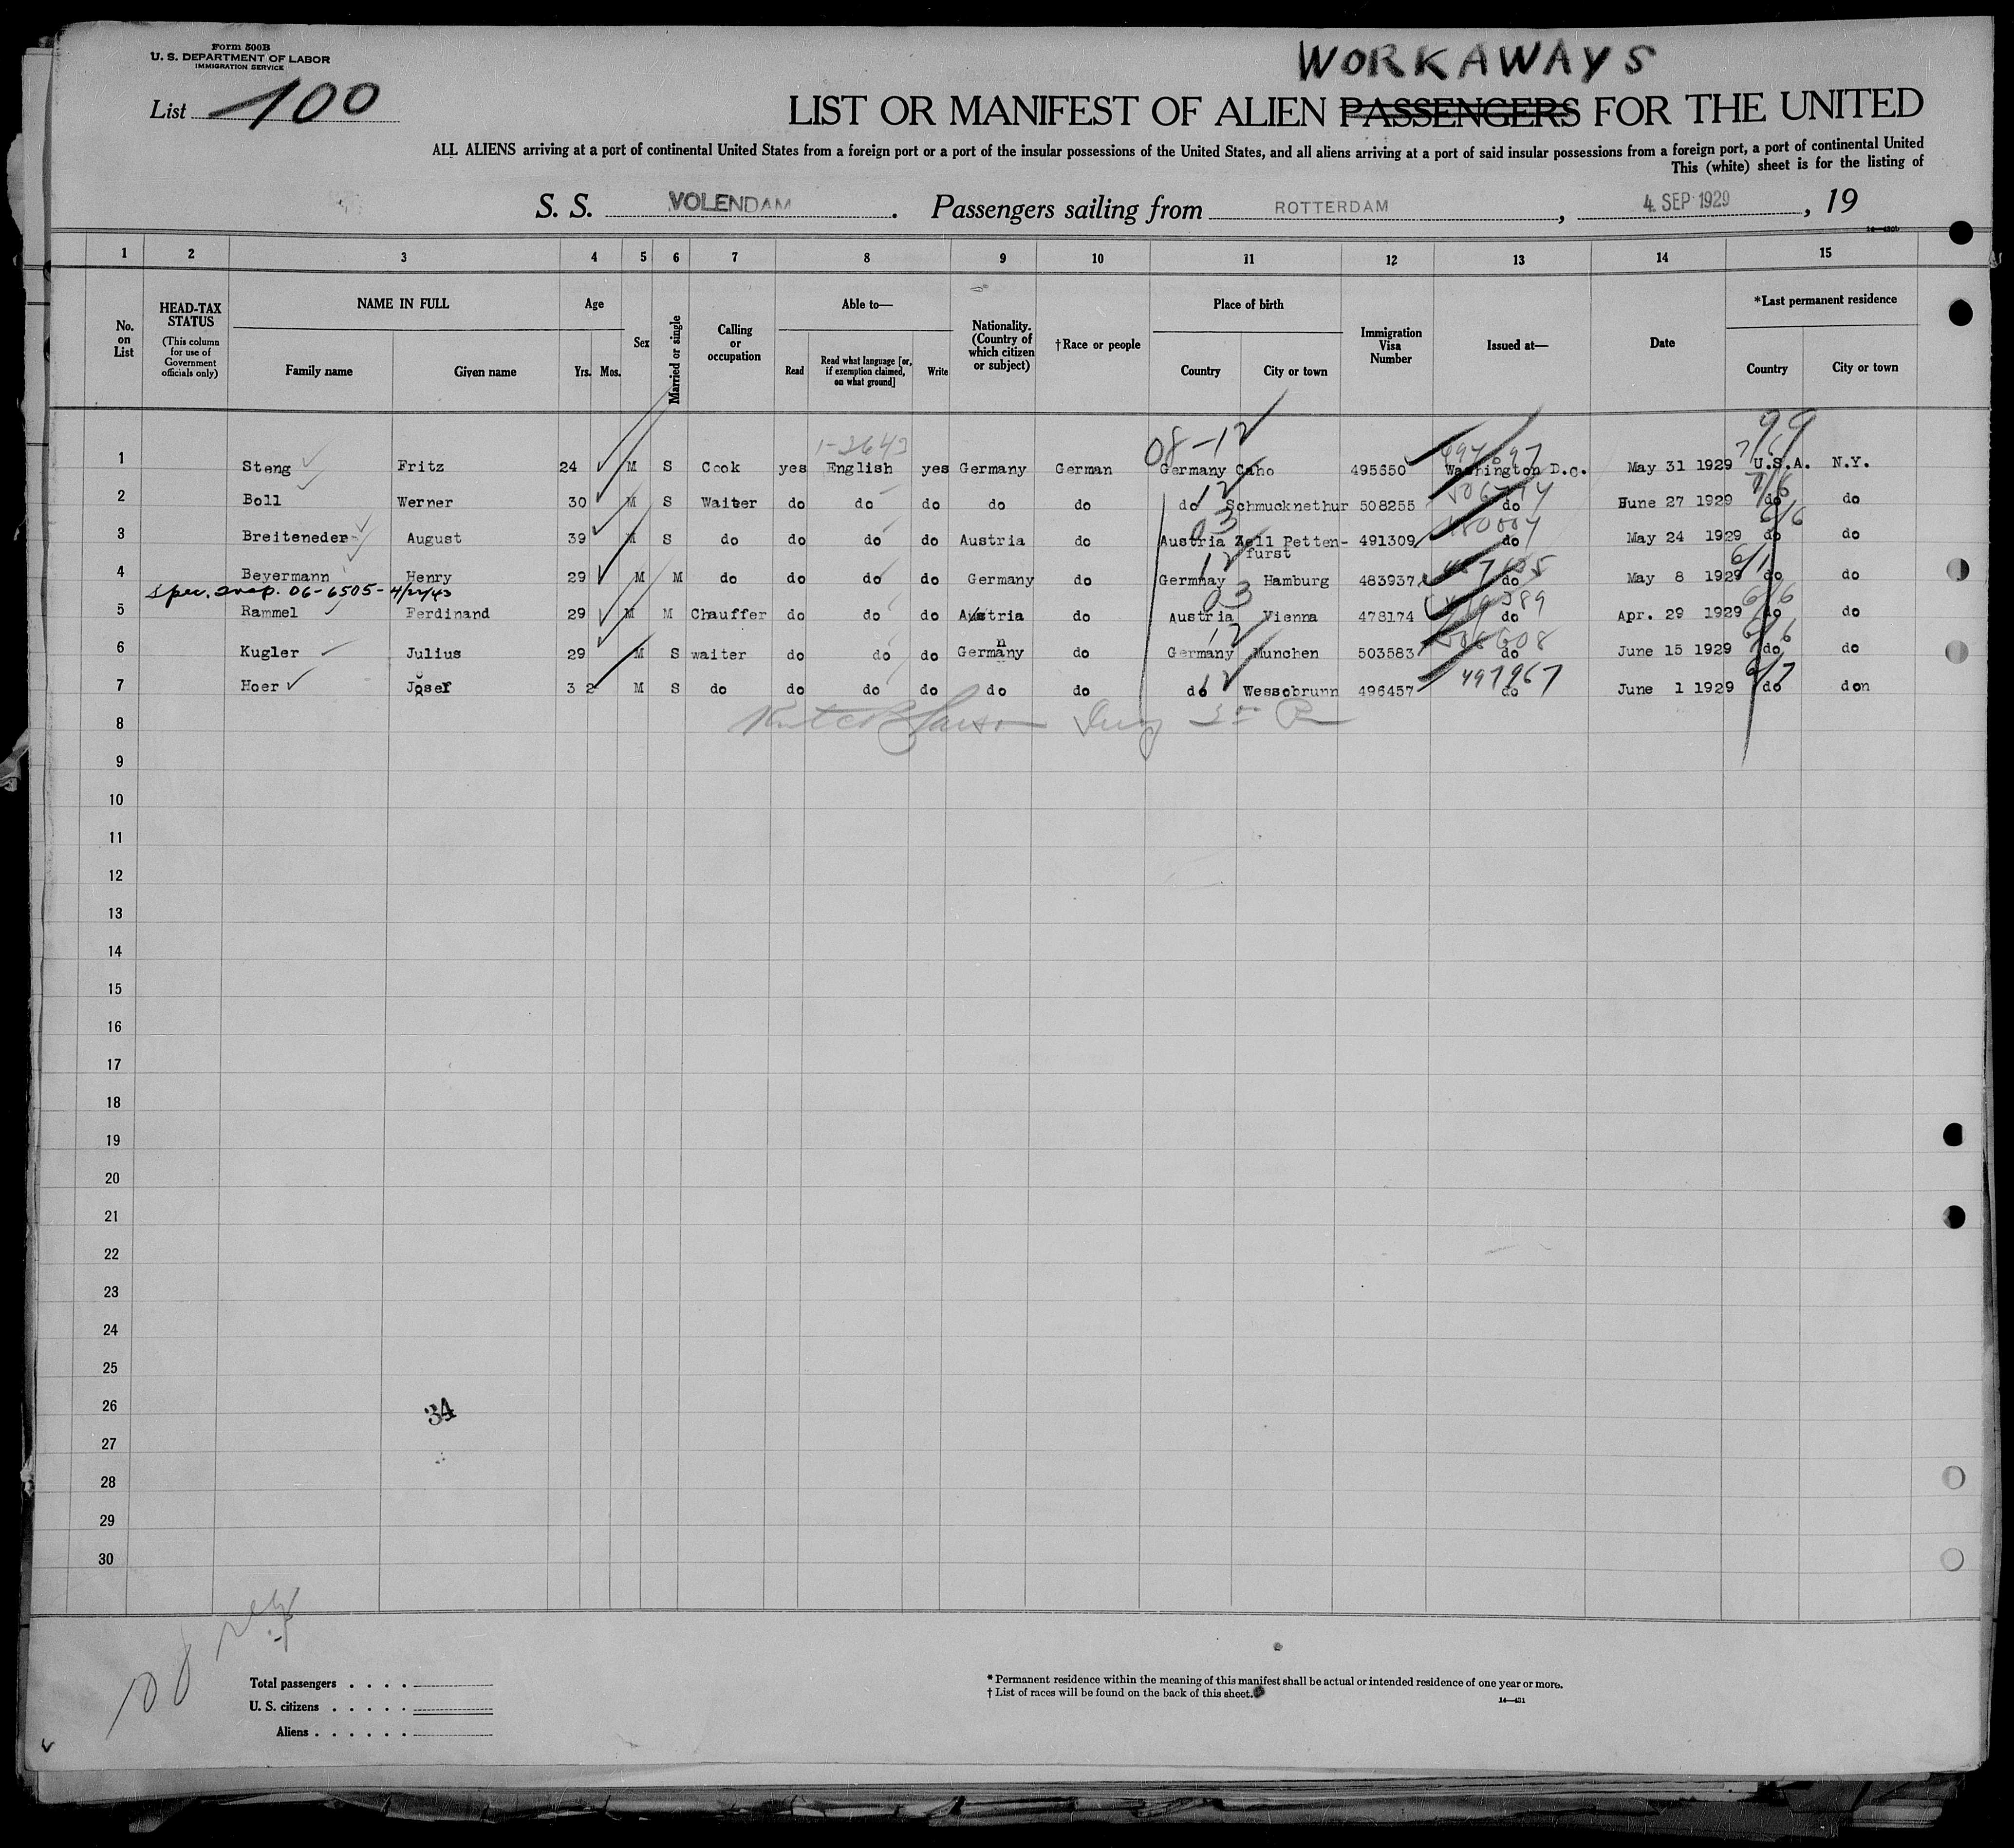 Form 500B
U. S. DEPARTMENT OF LABOR
IMMIGRATION SERVICE
List 100
WORKAWAYS
LIST OR MANIFEST OF ALIEN PASSENGERS FOR THE UNITED
ALL ALIENS arriving at a port of continental United States from a foreign port or a port of the insular possessions of the United States, and all aliens arriving at a port of said insular possessions from a foreign port, a port of continental United
This (white) sheet is for the listing of
S. S. VOLENDAM. Passengers sailing from ROTTERDAM, 4 SEP 1929, 19
1 2 3 4 5 6 7 8 9 10 11 12 13 14 15
No. on List
HEAD-TAX STATUS
(This column for use of Government officials only)
NAME IN FULL
Family name Given name
Age
Yrs. Mos.
Sex
Married or single
Calling or occupation
Able to—
Read Read what language [or, if exemption claimed, on what ground] Write
Nationality. (Country of which citizen or subject)
†Race or people
Place of birth
Country City or town
Immigration Visa Number
Issued at—
Date
*Last permanent residence
Country City or town
99
1-2643 08-12
1 Steng Fritz 24 M S Cook yes English yes Germany German Germany Caho 495650 Washington D.C. May 31 1929 U.S.A. N.Y.
2 Boll Werner 30 M S Waiter do do do do do do 12 Schmucknethur 508255 do June 27 1929 do do
3 Breiteneder August 39 M S do do do do Austria do Austria 03 Zell Petten- 491309 do May 24 1929 do do
furst
4 Beyermann Henry 29 M M do do do do Germany do Germnay 12 Hamburg 483937 do May 8 1929 do do
06-6505- 4/22/43
5 Rammel Ferdinand 29 M M Chauffer do do do Austria do Austria 03 Vienna 478174 do Apr. 29 1929 do do
6 Kugler Julius 29 M S waiter do do do Germany do Germany 12 Munchen 503583 do June 15 1929 do do
7 Hoer Josef 32 M S do do do do do do do 12 Wessobrunn 496457 497967 do June 1 1929 do don
8
9
10
11
12
13
14
15
16
17
18
19
20
21
22
23
24
25
26 34
27
28
29
30
Total passengers . . . .
U. S. citizens . . . . .
Aliens . . . . . .
* Permanent residence within the meaning of this manifest shall be actual or intended residence of one year or more.
† List of races will be found on the back of this sheet.
14—431